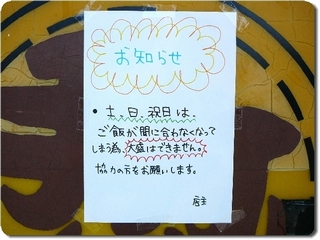 お知らせ
• 土、日、祝日は、
ご飯が間に合わなくなって
しまう為、大盛はできません。
協力の方をお願いします。
店主